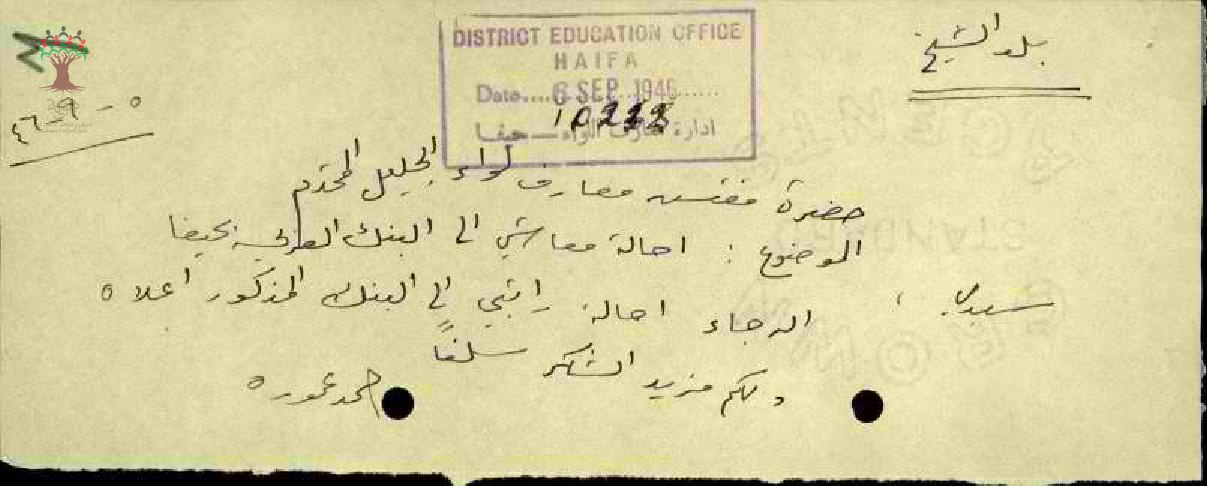 بلد الشيخ
DISTRICT EDUCATION OFFICE
HAIFA
Date....6 SEP 1946......
ادارة معارف اللواء - حيفا
٥-٩-٤٦
حضرة مفتش معارف لواء الجليل المحترم
الموضوع : احالة معاشي الى البنك العربي بحيفا
سيدي ،
الرجاء احالة راتبي الى البنك المذكور اعلاه
ولكم مزيد الشكر سلفاً